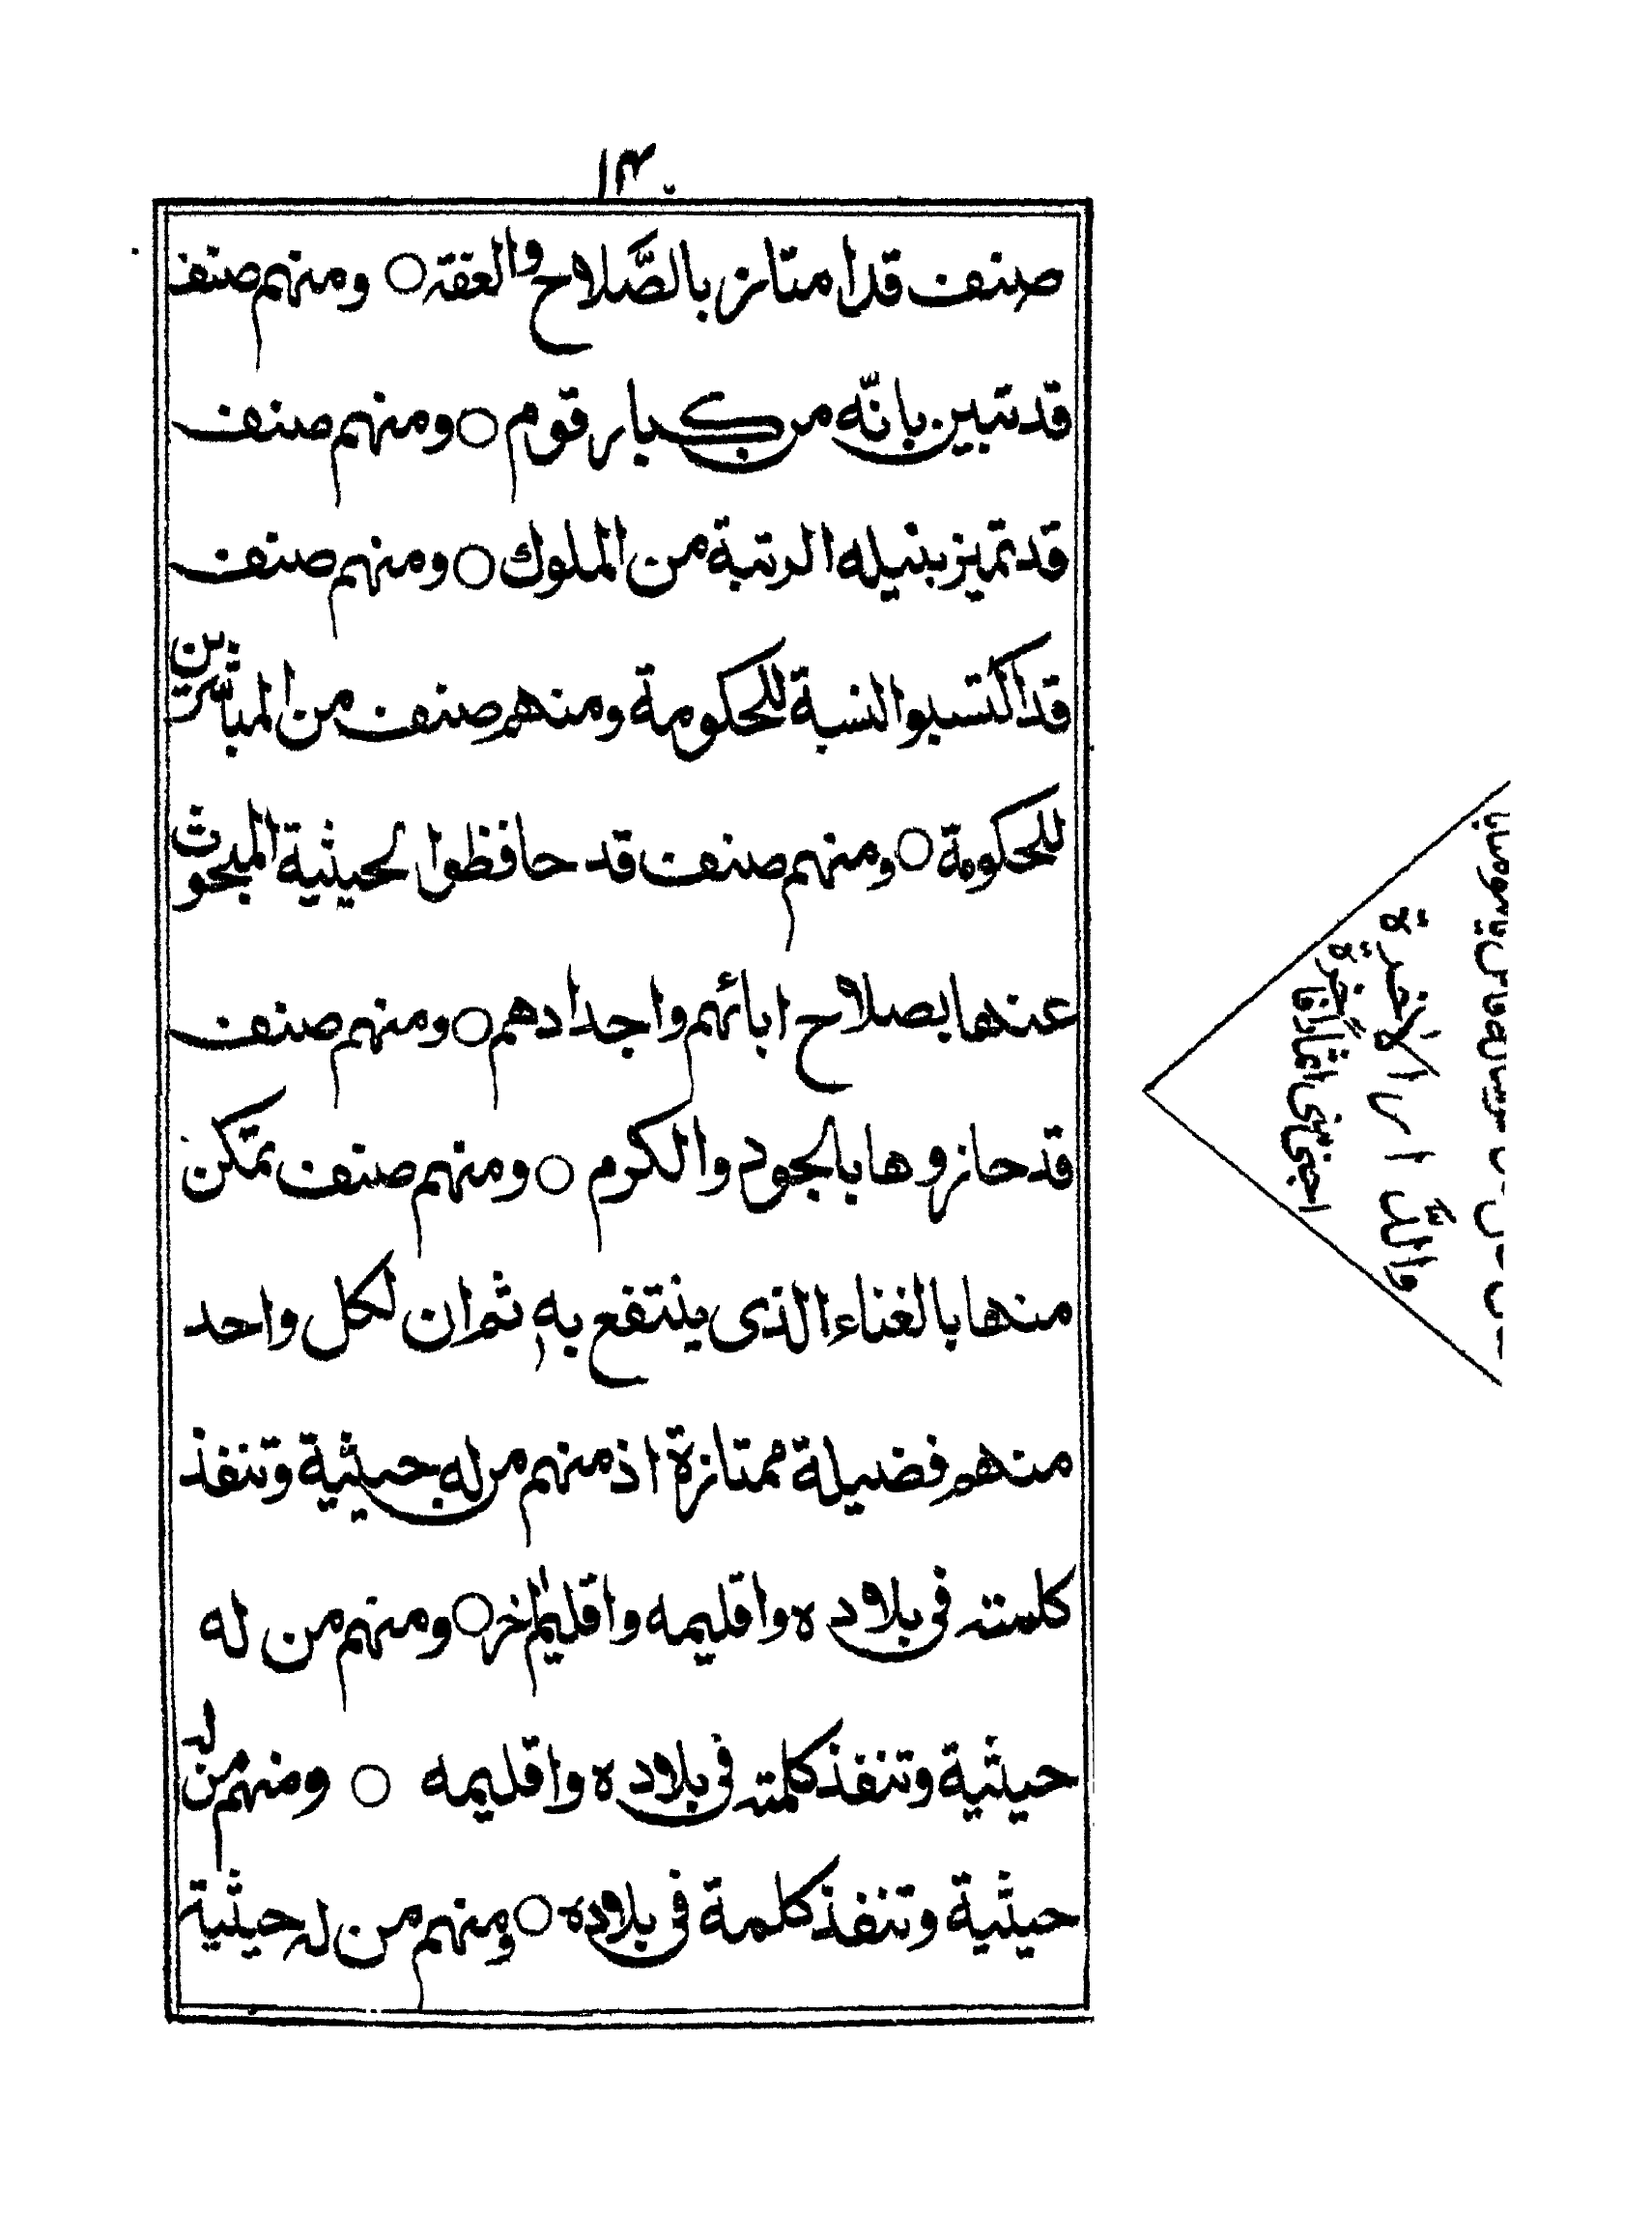 ١٣٠
صنف قد امتاز بالصّلاح والعفة ○ ومنهم صنف
قد تبين بانّه من كبار قوم ○ ومنهم صنف
قد تميز بنيله الرتبة من الملوك ○ ومنهم صنف
قد اكتسبوا النسبة للحكومة ومنهم صنف من المباشرين
للحكومة ○ ومنهم صنف قد حافظوا لحيثية المبحوث
عنها بصلاح ابائهم واجدادهم ○ ومنهم صنف
قد حازوها بالجود والكرم ○ ومنهم صنف تمكن
منها بالغناء الذى ينتفع به ثم ان لكل واحد
منهم فضيلة ممتازة اذ منهم من له حيثية وتنفذ
كلمته فى بلاده واقليمه واقليم اخر ○ ومنهم من له
حيثية وتنفذ كلمته فى بلاده واقليمه ○ ومنهم من له
حيثية وتنفذ كلمة فى بلاده ○ ومنهم من له حيثية
والدّار الاخرة